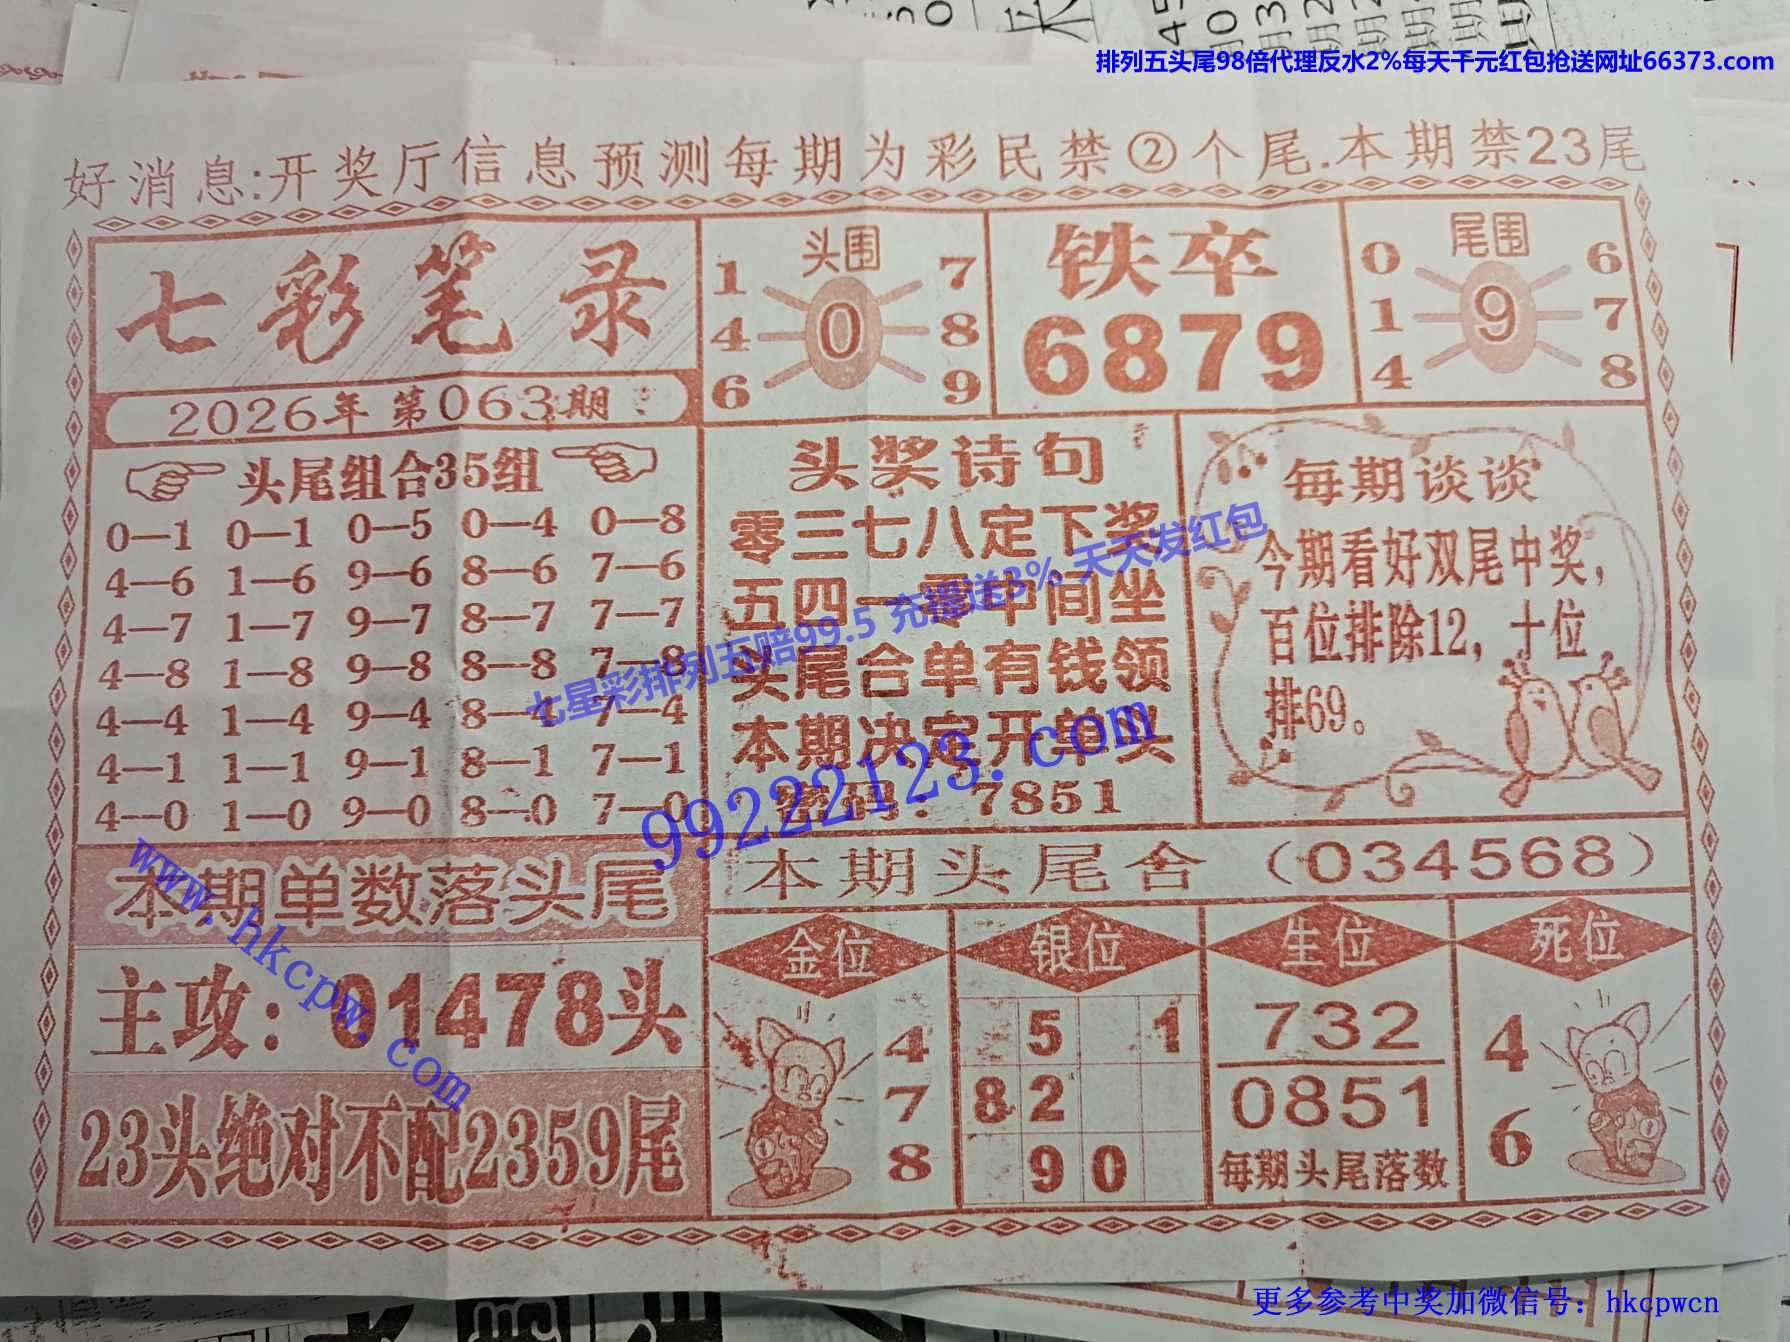 排列五头尾98倍代理反水2%每天千元红包抢送网址66373.com
好消息:开奖厅信息预测每期为彩民禁②个尾.本期禁23尾
七彩笔录
2026年 第063期
头围
1 7
4 0 8
6 9
铁卒
6879
尾围
0 6
1 9 7
4 8
头尾组合35组
0—1 0—1 0—5 0—4 0—8
4—6 1—6 9—6 8—6 7—6
4—7 1—7 9—7 8—7 7—7
4—8 1—8 9—8 8—8 7—8
4—4 1—4 9—4 8—4 7—4
4—1 1—1 9—1 8—1 7—1
4—0 1—0 9—0 8—0 7—0
头奖诗句
零三七八定下奖
五四一零中间坐
头尾合单有钱领
本期决定开单头
密码: 7851
每期谈谈
今期看好双尾中奖,
百位排除12, 十位
排69。
七星彩排列五赔99.5 充值送3% 天天发红包
99222123.com
www.hkcpw.com
本期单数落头尾
主攻: 01478头
23头绝对不配2359尾
本期头尾含 (034568)
金位
4
7
8
银位
5 1
8 2
9 0
生位
732
0851
每期头尾落数
死位
4
6
更多参考中奖加微信号: hkcpwcn